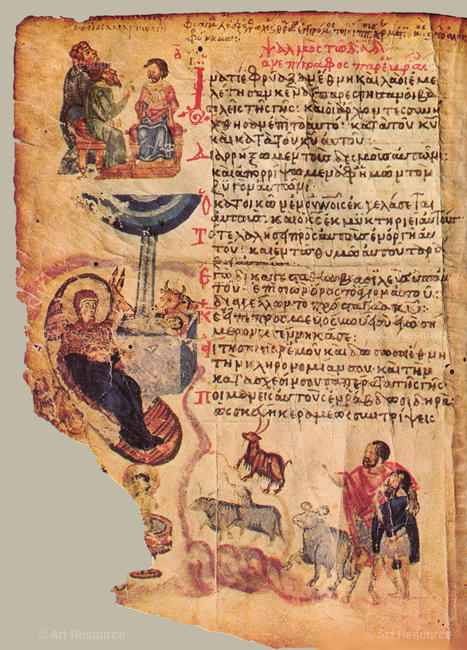 ψαλμὸς τῷ δαδ
ἀνεπίγραφος παρ' ἑβραίοις
Ἱνατί ἐφρύαξαν ἔθνη καὶ λαοὶ ἐμε
λέτησαν κενά· παρέστησαν οἱ βα
σιλεῖς τῆς γῆς· καὶ οἱ ἄρχοντες συνή
χθησαν ἐπιτοαυτό· κατὰ τοῦ κυ
καὶ κατὰ τοῦ χυ αὐτοῦ·
Διαρρήξωμεν τοὺς δεσμοὺς αὐτῶν·
καὶ ἀπορρίψωμεν ἀφ' ἡμῶν τὸν
ζυγὸν αὐτῶν·
Ὁ κατοικῶν ἐν οὐνοῖς ἐκγελάσεται
αὐτούς· καὶ ὁ κς ἐκμυκτηριεῖ αὐτούς
Τότε λαλήσει πρὸς αὐτοὺς ἐν ὀργῇ αὐ
τοῦ· καὶ ἐν τῷ θυμῷ αὐτοῦ ταρά
Ἐγὼ δὲ κατεστάθην βασιλεὺς ὑπ' αὐ
τοῦ· ἐπὶ σιὼν ὄρος τὸ ἅγιον αὐτοῦ·
διαγγέλλων τὸ πρόσταγμα κυ·
Κς εἶπεν πρός με υς μου εἶ σύ· ἐγὼ σή
μερον γεγέννηκά σε·
Αἴτησαι παρ' ἐμοῦ καὶ δώσω σοι ἔθνη
τὴν κληρονομίαν σου· καὶ τὴν
κατάσχεσίν σου τὰ πέρατα τῆς γῆς·
Ποιμανεῖς αὐτοὺς ἐν ῥάβδῳ σιδηρᾷ·
ὡς σκεύη κεραμέως συντρίψεις
© Art Resource
© Art Resource